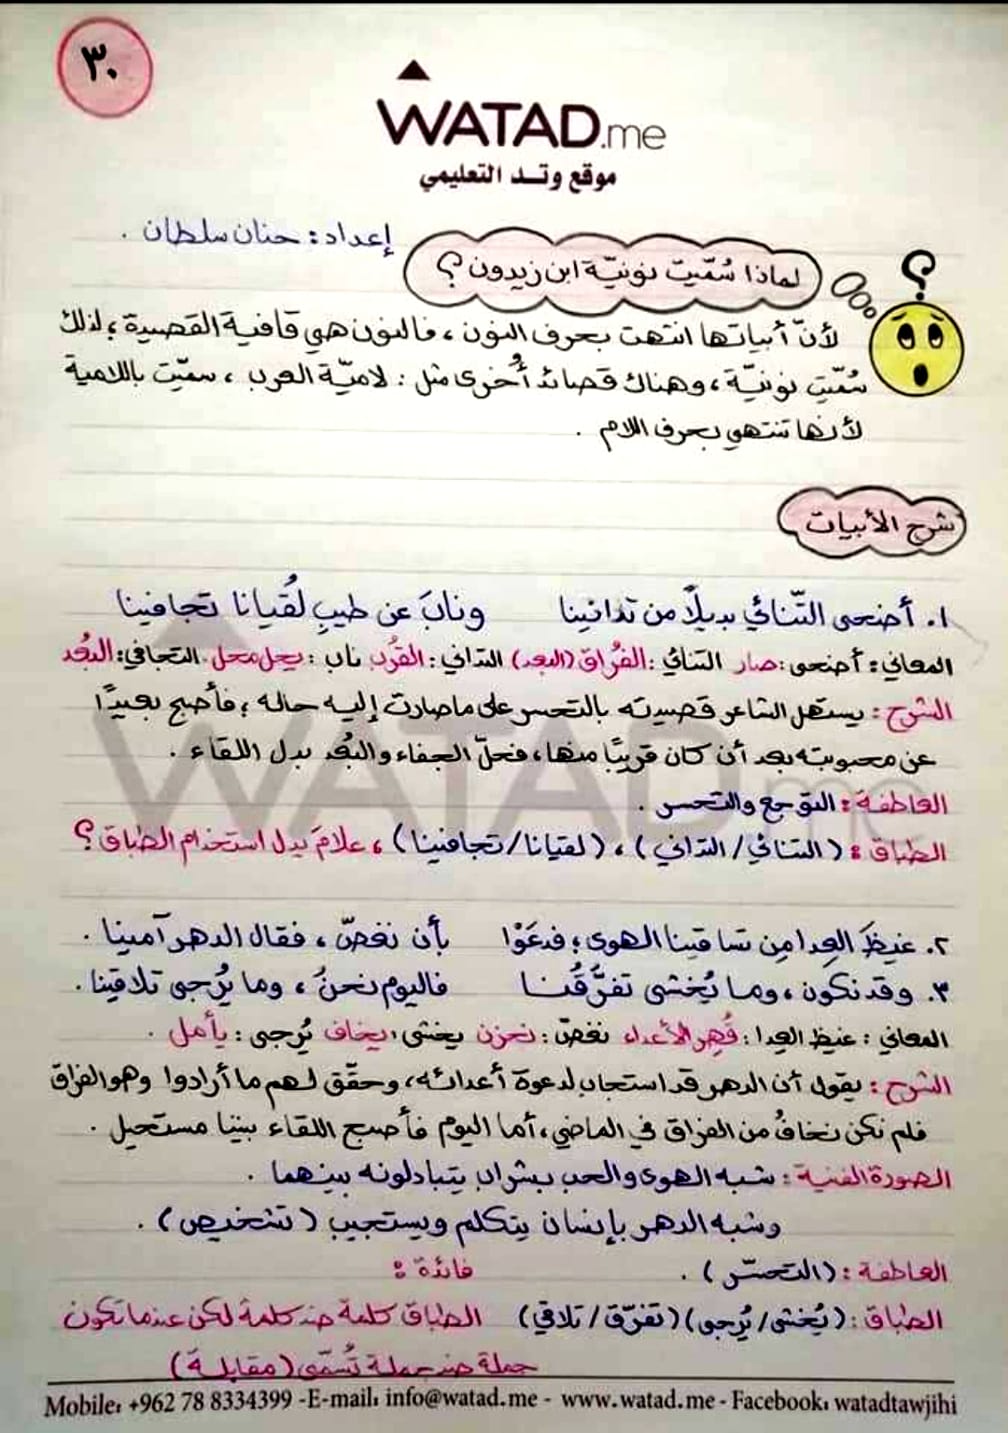 ٣٠
WATAD.me
موقع وتد التعليمي
إعداد: حنان سلطان.
لماذا سُمّيت نونيّة ابن زيدون؟
لأنّ أبياتها انتهت بحرف النون، فالنون هي قافية القصيدة؛ لذلك
سُمّيت نونيّة، وهناك قصائد أُخرى مثل: لاميّة العرب، سمّيت باللامية
لأنها تنتهي بحرف اللام.
شرح الأبيات
١. أضحى التّنائي بديلًا من تدانينا ونابَ عن طيبِ لُقيانا تجافينا
المعاني: أضحى: صار التنائي: الفُراق (البعد) التداني: القُرب ناب: يحل محل. التجافي: البُعد
الشرح: يستهل الشاعر قصيدته بالتحسر على ما صارت إليه حاله؛ فأصبح بعيدًا
عن محبوبته بعد أن كان قريبًا منها، فحلّ الجفاء والبُعد بدل اللقاء.
العاطفة: التوجع والتحسر.
الطباق: (التنائي/التداني)، (لقيانا/تجافينا)، علامَ يدل استخدام الطباق؟
٢. غيظَ العِدا مِن تساقينا الهوى؛ فدعَوْا بأن نغصّ، فقال الدهر آمينا.
٣. وقد نكون، وما يُخشى تفرّقُنا فاليوم نحنُ، وما يُرجى تلاقينا.
المعاني: غيظ العِدا: قُهِر الأعداء نغصّ: نحزن يخشى: يخاف يُرجى: يأمل.
الشرح: يقول أن الدهر قد استجاب لدعوة أعدائه، وحقّق لهم ما أرادوا وهو الفراق
فلم نكن نخافُ من الفراق في الماضي، أما اليوم فأصبح اللقاء بيننا مستحيل.
الصورة الفنية: شبه الهوى والحب بشراب يتبادلونه بينهما.
وشبه الدهر بإنسان يتكلم ويستجيب (تشخيص).
العاطفة: (التحسّر). فائدة:
الطباق: (يُخشى/يُرجى) (تفرّق/تلاقي) الطباق كلمة ضد كلمة لكن عندما تكون
جملة ضد جملة تُسمّى (مقابلة)
Mobile: +962 78 8334399 -E-mail: info@watad.me - www.watad.me - Facebook: watadtawjihi
WATAD.me